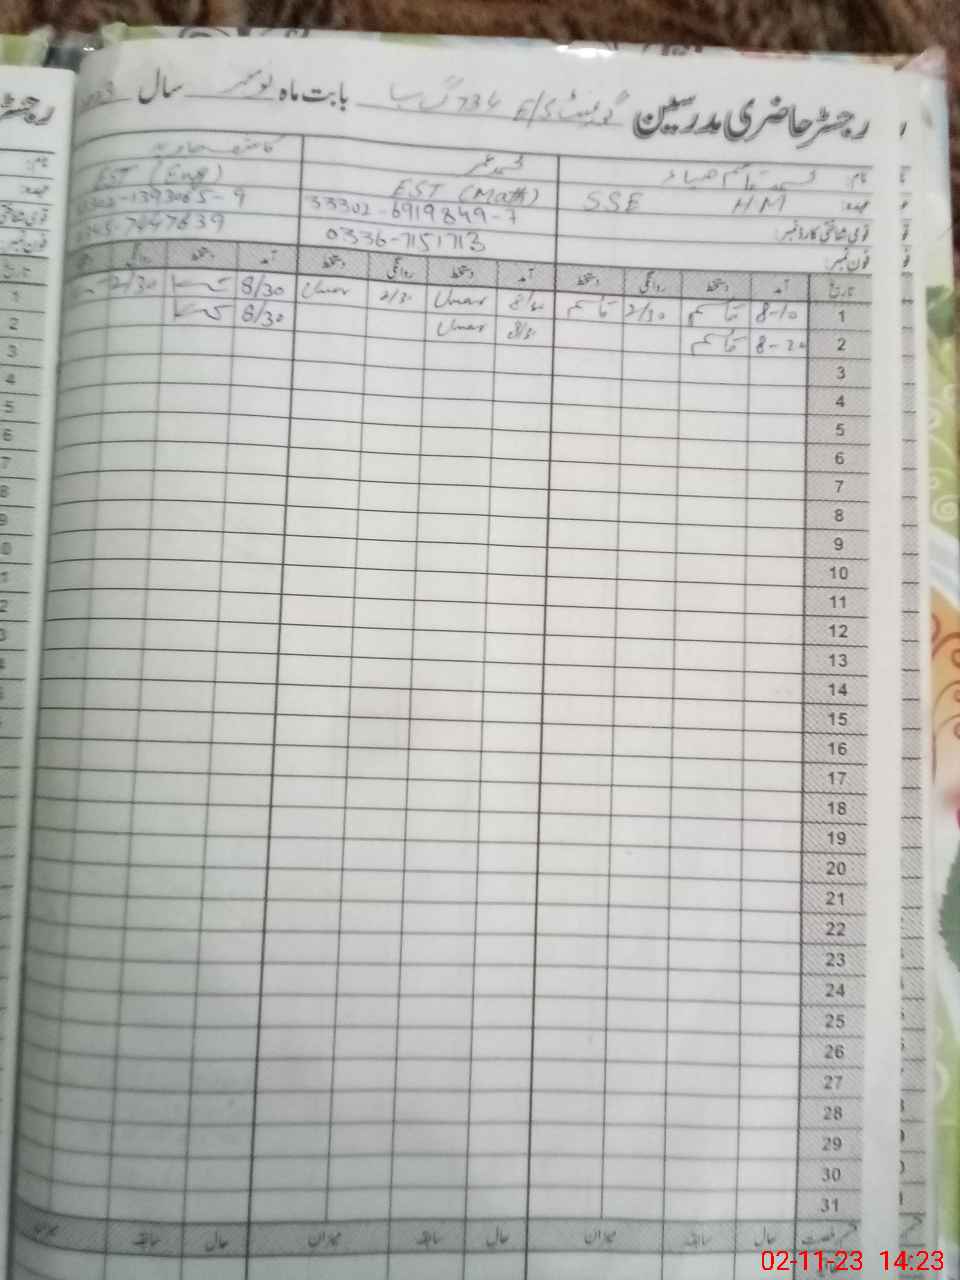 رجسٹر حاضری مدرسین گورنمنٹ E/S 734 گ ب بابت ماہ نومبر سال
نام: محمد قاسم ضیاء محمد عمر
عہدہ: SSE HM EST (Math) EST (Eng)
قومی شناختی کارڈ نمبر: 33302-6919849-7 1393065-9
فون نمبر: 0336-7151713 7447639
تاریخ آمد دستخط روانگی دستخط آمد دستخط روانگی دستخط آمد دستخط روانگی
1 8-10 قاسم 2/30 قاسم Umar 2/30 Umar 8/30 2/30
2 8-20 قاسم Umar 8/30
3
4
5
6
7
8
9
10
11
12
13
14
15
16
17
18
19
20
21
22
23
24
25
26
27
28
29
30
31
قسم رخصت حال سابقہ میزان حال سابقہ میزان حال سابقہ میزان
02-11-23 14:23